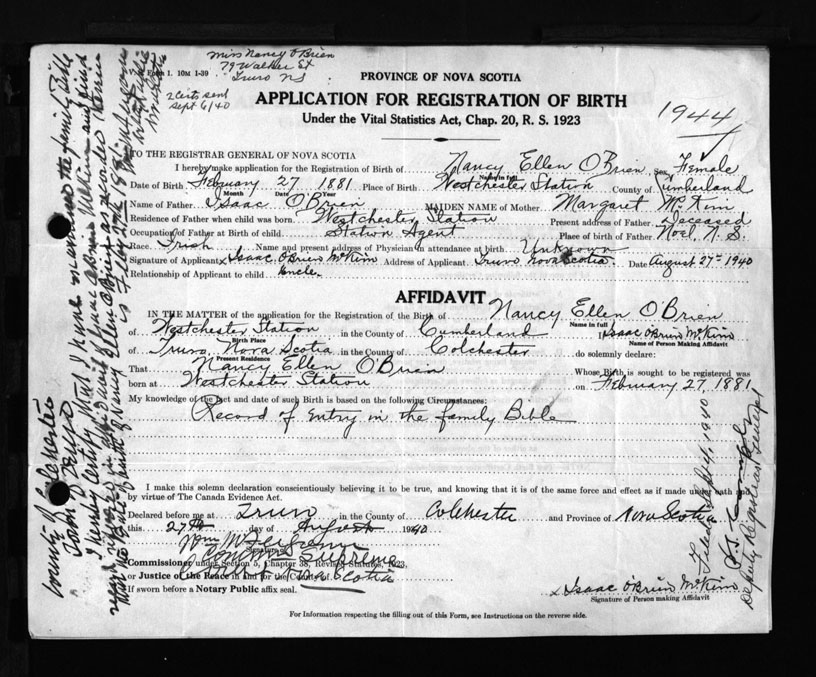 Form 1. 10M 1-39
Miss Nancy O'Brien
79 Walker St
Truro NS
2 Certs sent
Sept 6/40
PROVINCE OF NOVA SCOTIA
APPLICATION FOR REGISTRATION OF BIRTH
Under the Vital Statistics Act, Chap. 20, R. S. 1923
1944
TO THE REGISTRAR GENERAL OF NOVA SCOTIA
I hereby make application for the Registration of Birth of Nancy Ellen O'Brien Sex Female
Name in full
Date of Birth February 27 1881 Place of Birth Westchester Station County of Cumberland
Month Date Year
Name of Father Isaac O'Brien MAIDEN NAME of Mother Margaret McKim
Residence of Father when child was born Westchester Station Present address of Father Deceased
Occupation of Father at Birth of child Station Agent Place of birth of Father Noel, N. S.
Race Irish Name and present address of Physician in attendance at birth Unknown
Signature of Applicant x Isaac O'Brien McKim Address of Applicant Truro Nova Scotia. Date August 27th 1940
Relationship of Applicant to child Uncle.
AFFIDAVIT
IN THE MATTER of the application for the Registration of the Birth of Nancy Ellen O'Brien
Name in full
of Westchester Station in the County of Cumberland I, Isaac O'Brien McKim
Birth Place Name of Person Making Affidavit
of Truro, Nova Scotia in the County of Colchester do solemnly declare:
Present Residence
That Nancy Ellen O'Brien Whose Birth is sought to be registered was
born at Westchester Station on February 27, 1881
My knowledge of the fact and date of such Birth is based on the following Circumstances:
Record of Entry in the family Bible
I make this solemn declaration conscientiously believing it to be true, and knowing that it is of the same force and effect as if made under oath and
by virtue of The Canada Evidence Act.
Declared before me at Truro in the County of Colchester and Province of Nova Scotia
this 27th day of August 1940
Commissioner under Section 5, Chapter 38, Revised Statutes, 1923,
Supreme
or Justice of the Peace in and for the County of
Court Nova Scotia
If sworn before a Notary Public affix seal.
x Isaac O'Brien McKim
Signature of Person making Affidavit
For Information respecting the filling out of this Form, see Instructions on the reverse side.
County of Colchester
Town of Truro
I hereby certify that I have examined the family Bible
Filed Sept 4, 1940
Deputy Registrar General